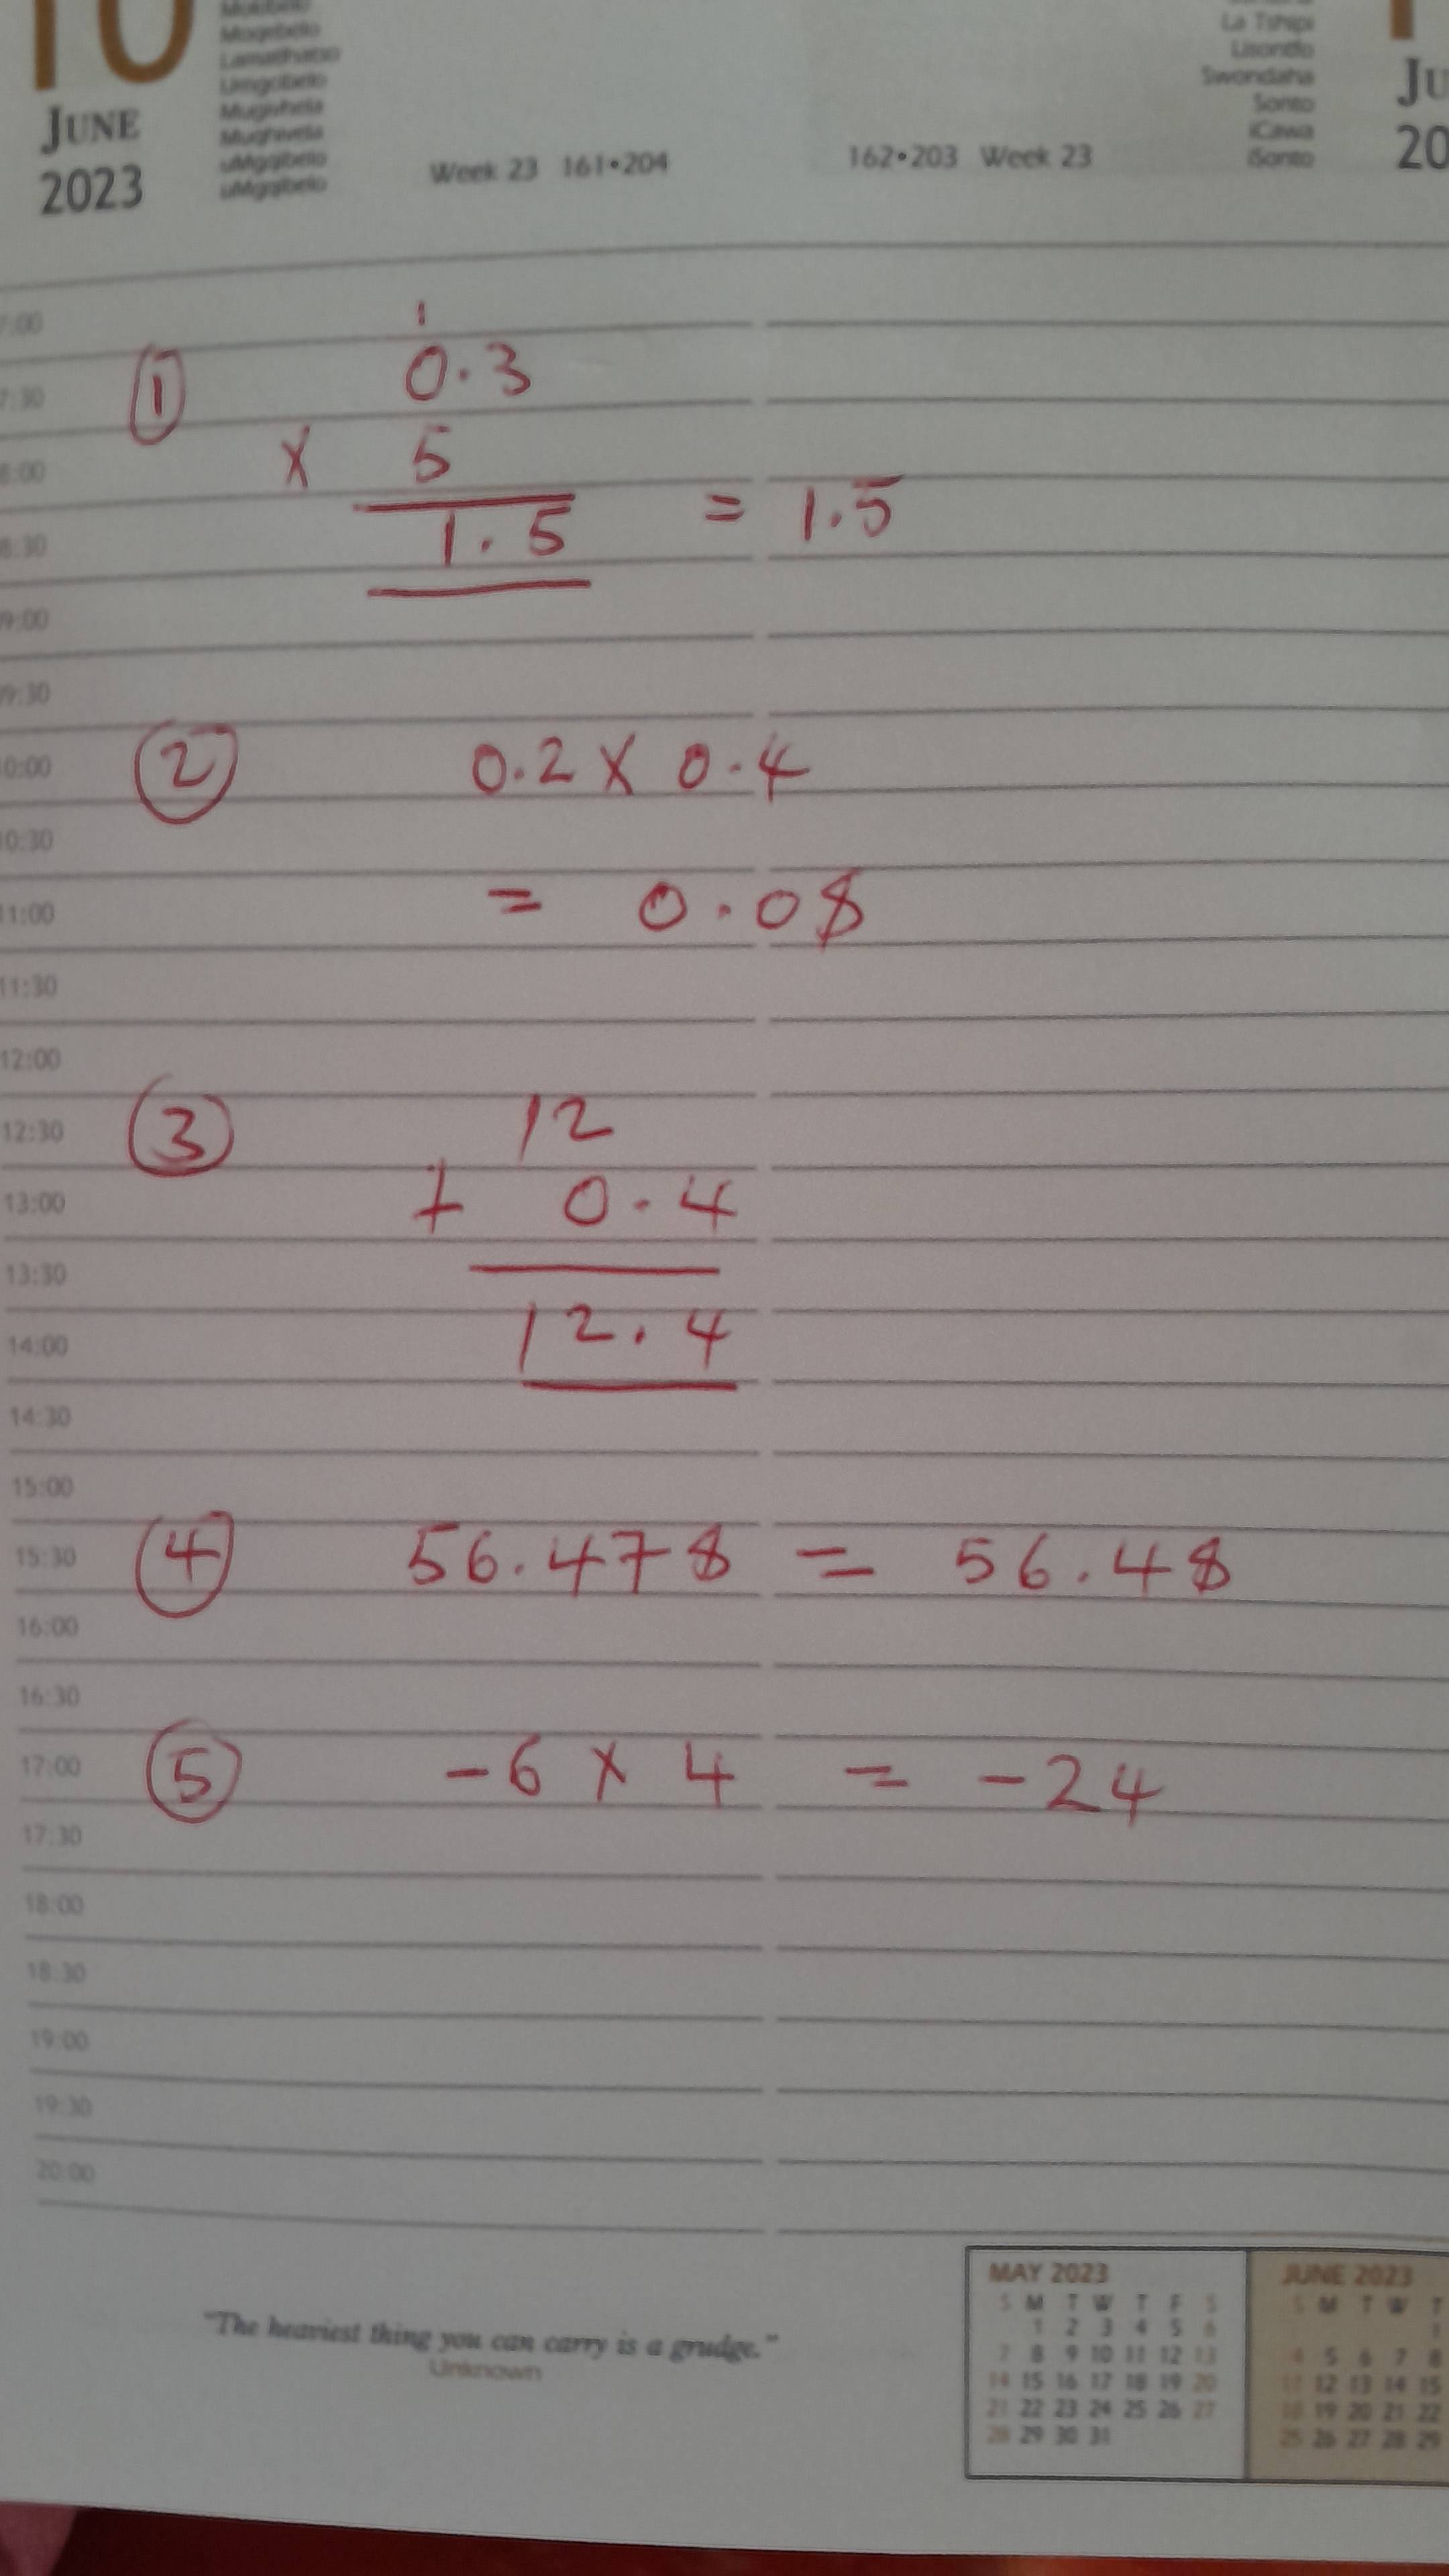 10
JUNE
2023
Mogebelo
Umgqibelo
Mugivhela
Mughivela
uMgqibelo
uMgqibelo
Week 23 161•204
162•203 Week 23
La Tshipi
Lisontfo
Swondaha
Sonto
iCawa
iSonto
JU
20
7:00
1
① 0.3
7:30
x 5
8:00
1.5 = 1.5
8:30
09:00
09:30
② 0.2 x 0.4
10:00
10:30
= 0.08
11:00
11:30
12:00
③ 12
12:30
+ 0.4
13:00
13:30
12.4
14:00
14:30
15:00
④ 56.478 = 56.48
15:30
16:00
16:30
⑤ -6 x 4 = -24
17:00
17:30
18:00
18:30
19:00
19:30
20:00
"The heaviest thing you can carry is a grudge."
Unknown
MAY 2023
S M T W T F S
1 2 3 4 5 6
7 8 9 10 11 12 13
14 15 16 17 18 19 20
21 22 23 24 25 26 27
28 29 30 31
JUNE 2023
S M T W T
1
4 5 6 7 8
11 12 13 14 15
18 19 20 21 22
25 26 27 28 29